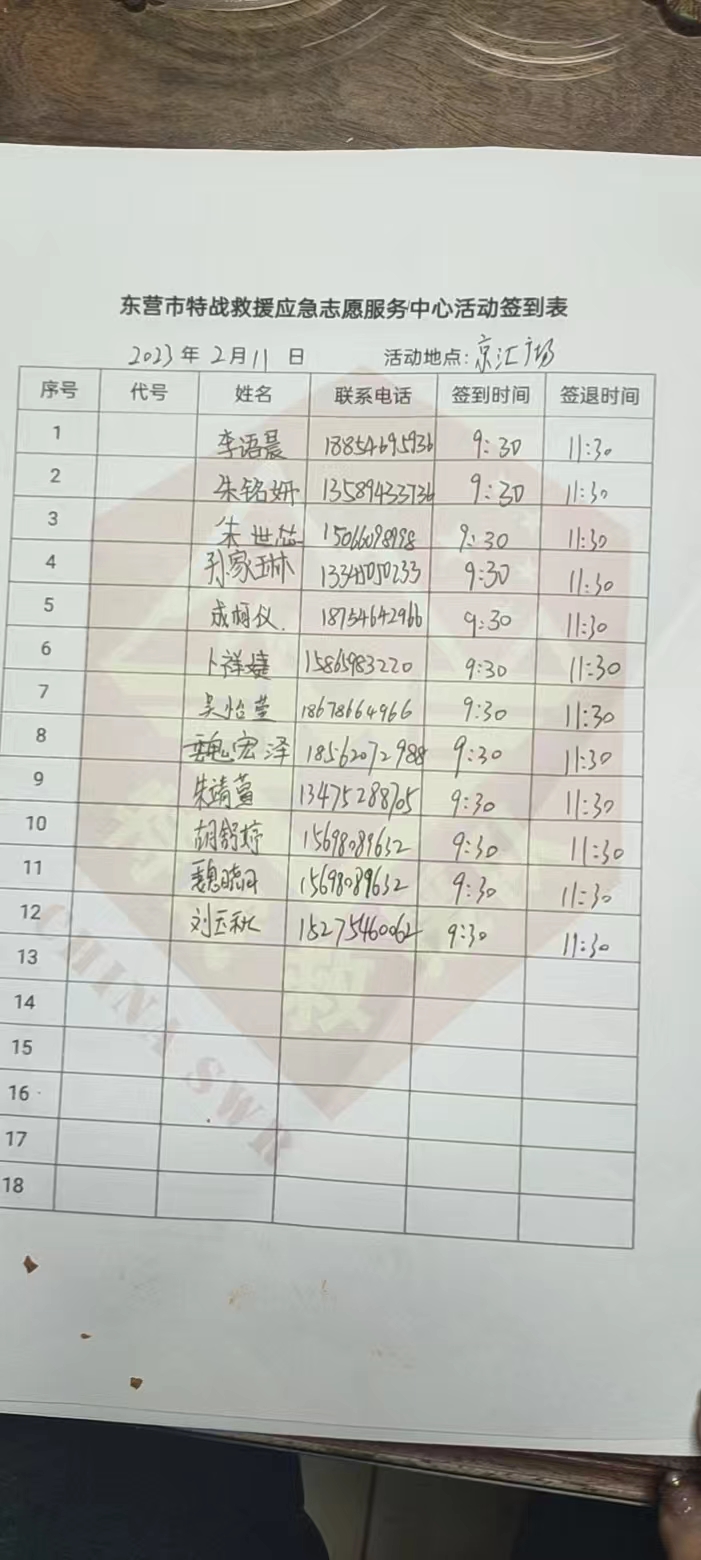 东营市特战救援应急志愿服务中心活动签到表
2023年 2月11日 活动地点:京汇广场
序号 代号 姓名 联系电话 签到时间 签退时间
1 李语晨 18854695936 9:30 11:30
2 朱铭妍 13589433736 9:30 11:30
3 朱世芯 15066098998 9:30 11:30
4 孙家琳 13345050233 9:30 11:30
5 成柯仪. 18754642966 9:30 11:30
6 卜祥婕 15865983220 9:30 11:30
7 吴怡莹 18678664966 9:30 11:30
8 魏宏泽 18562072988 9:30 11:30
9 朱靖萱 13475288705 9:30 11:30
10 胡舒婷 15698089632 9:30 11:30
11 魏晓 15698089632 9:30 11:30
12 刘玉秋 15275460062 9:30 11:30
13
14
15
16
17
18
CHINA SWR